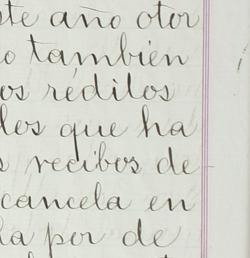 ste año otor
o también
os réditos
les que ha
s recibos de
cancela en
la por de